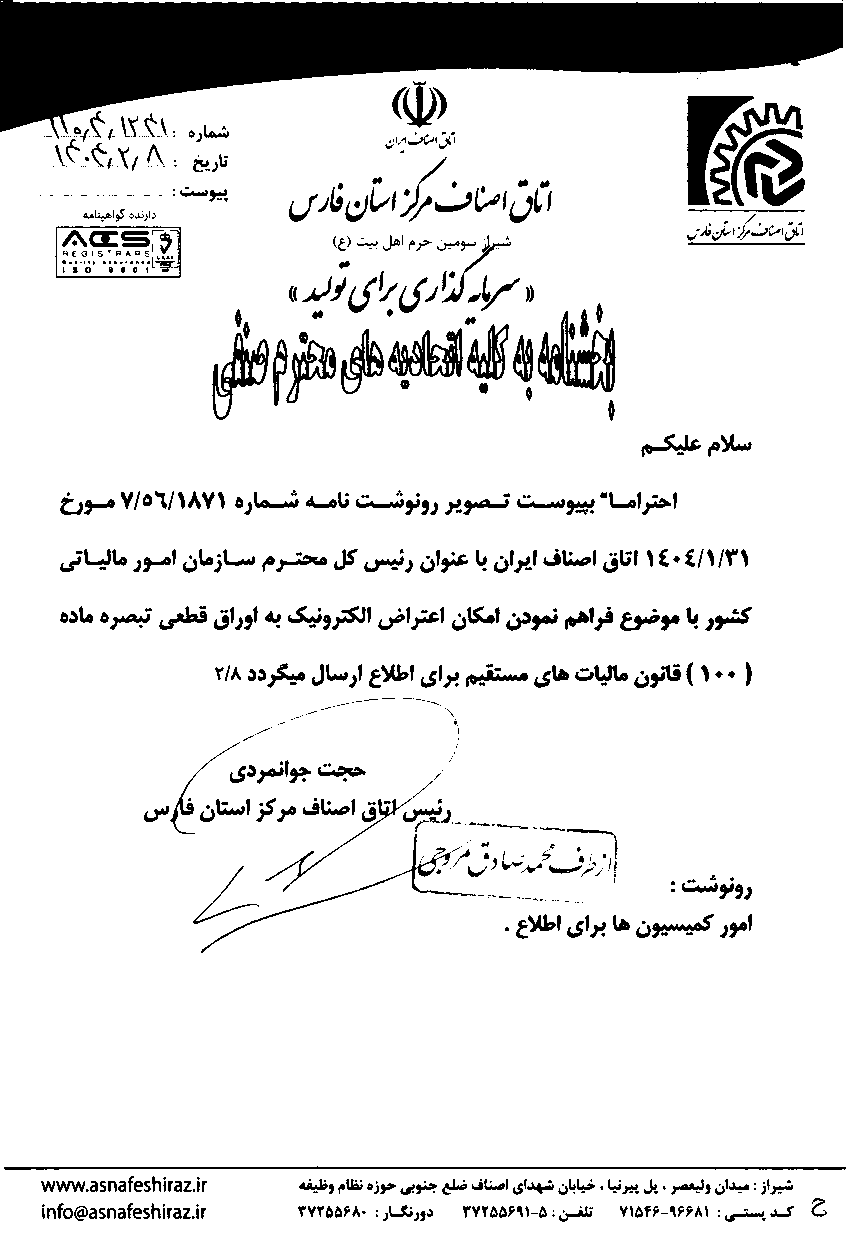 اتاق اصناف ایران
شماره : ۱۱۰۵/۴/۱۲۴۱
تاریخ : ۱۴۰۴/۲/۸
پیوست :
دارنده گواهینامه
ACS
REGISTRARS
Quality Assurance
ISO 9001
اتاق اصناف مرکز استان فارس
اتاق اصناف مرکز استان فارس
شیراز سومین حرم اهل بیت (ع)
« سرمایه گذاری برای تولید »
بخشنامه به کلیه اتحادیه های محترم صنفی
سلام علیکم
احتراما" بپیوست تصویر رونوشت نامه شماره ۷/۵۶/۱۸۷۱ مورخ
۱۴۰۴/۱/۳۱ اتاق اصناف ایران با عنوان رئیس کل محترم سازمان امور مالیاتی
کشور با موضوع فراهم نمودن امکان اعتراض الکترونیک به اوراق قطعی تبصره ماده
( ۱۰۰ ) قانون مالیات های مستقیم برای اطلاع ارسال میگردد ۲/۸
حجت جوانمردی
رئیس اتاق اصناف مرکز استان فارس
از طرف محمد صادق مروجی
رونوشت :
امور کمیسیون ها برای اطلاع .
شیراز : میدان ولیعصر ، پل پیرنیا ، خیابان شهدای اصناف ضلع جنوبی حوزه نظام وظیفه
www.asnafeshiraz.ir
کد پستی : ۷۱۵۴۶-۹۶۶۸۱ تلفن : ۵-۳۷۲۵۵۶۹۱ دورنگار : ۳۷۲۵۵۶۸۰
info@asnafeshiraz.ir